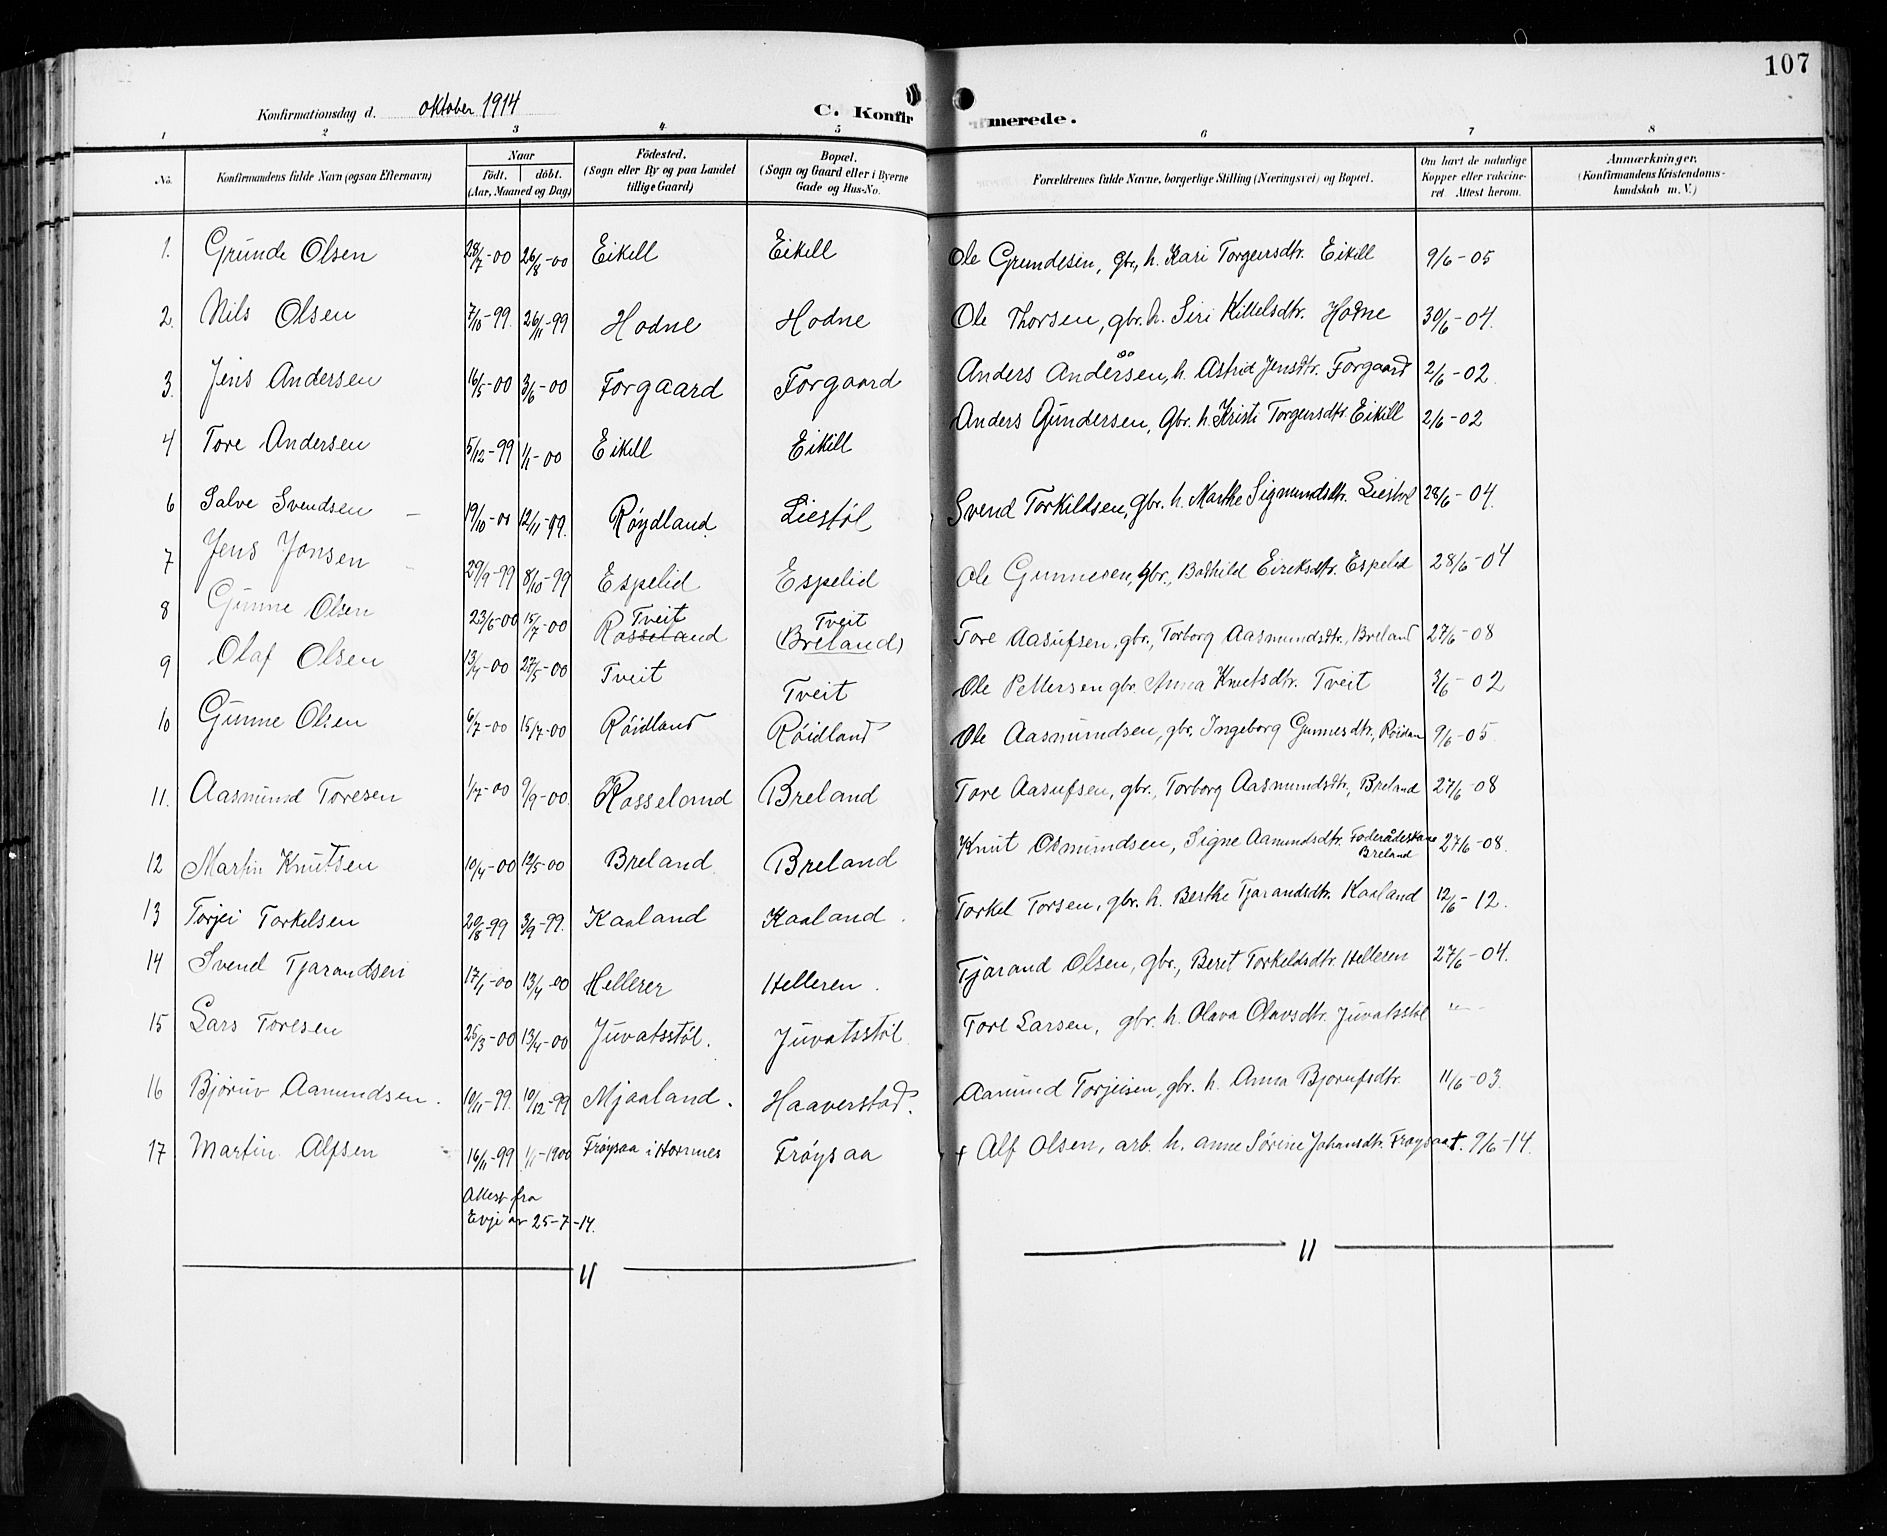 107
Konfirmationsdag d. oktober 1914 C. Konfir merede.
1 2 3 4 5 6 7 8
No. Konfirmandens fulde Navn (ogsaa Efternavn) Naar født. døbt. (Aar, Maaned og Dag) Födested. (Sogn eller By og paa Landet tillige Gaard) Bopæl. (Sogn og Gaard eller i Byerne Gade og Hus-No. Forældrenes fulde Navne, borgerlige Stilling (Næringsvei) og Bopæl. Om havt de naturlige Kopper eller vakcineret Attest herom. Anmærkninger. (Konfirmandens Kristendomskundskab m. V.)
1. Grunde Olsen 28/7-00 26/8-00 Eikill Eikill Ole Grundesen, gbr, h. Kari Torgersdtr. Eikill 9/6-05
2. Nils Olsen 7/10-99. 26/11-99 Hodne Hodne Ole Thorsen, gbr. h. Siri Kittelsdtr. Hodne 30/6-04.
3. Jens Andersen 16/5-00 3/6-00 Forgaard Forgaard Anders Andersen, h. Astrid Jensdtr. Forgaard 2/6-02
4 Tore Andersen 5/12-99 1/1-00 Eikill Eikill Anders Gundersen, Gbr. h. Kristi Torgersdtr. Eikill 2/6-02
6 Salve Svendsen 19/10-00 12/11-99. Røydland. Liestøl Svend Torkildsen, gbr. h. Marthe Sigmundsdtr. Liestøl 28/6-04.
7 Jens Jonsen 29/9-99 8/10-99 Espelid Espelid Ole Gunnesen, gbr., Bothild Eireksdtr. Espelid 28/6-04
8 Gunne Olsen 23/6-00 15/7-00 Tveit Rosseland Tveit (Breland) Tore Aasufsen, gbr, Torborg Aasmundsdtr., Breland 27/6-08
9 Olaf Olsen 13/4-00 27/5-00 Tveit Tveit Ole Pettersen gbr. Anna Knutsdtr. Tveit 3/6-02
10 Gunne Olsen 6/7-00 15/7-00 Røidland Røidland Ole Aasmundsen, gbr. Ingeborg Gunnesdtr., 9/6-05
11. Aasmund Toresen 1/7-00 9/9-00. Rosseland Breland Tore Aasufsen, gbr., Torborg Aasmundsdtr., Breland 27/6-08
12 Martin Knutsen 10/4-00 12/5-00 Breland Breland Knut Osmundsen, Signe Aamundsdtr. Foderådskone Breland 27/6-08.
13 Torjei Torkelsen 20/8-99 3/9-99. Kaaland Kaaland. Torkel Torsen, gbr. h. Berthe Tjarandsdtr. Kaaland 12/6-12.
14 Svend Tjarandsen 17/1-00 13/4-00 Helleren Helleren. Tjarand Olsen, gbr., Beret Torkeldsdtr. Helleren 27/6-04.
15 Lars Toresen 25/3-00 13/4-00 Juvatsstøl. Juvatsstøl Tore Larsen, gbr. h. Olava Olavsdtr. Juvatsstøl "
16 Bjøruv Aamundsen. 10/11-99. 10/12-99 Mjaaland. Haaverstad. Aamund Torjeisen, gbr. h. Anna Bjorufsdtr. 11/6-03.
17 Martin Alfsen 16/11-99 1/1-1900 Frøysaa i Hornnes Frøysaa + Alf Olsen, arb. h. Anne Sørine Johansdtr. Frøysaa +. 9/6-14.
Attest fra
Evje av 25-7-14.